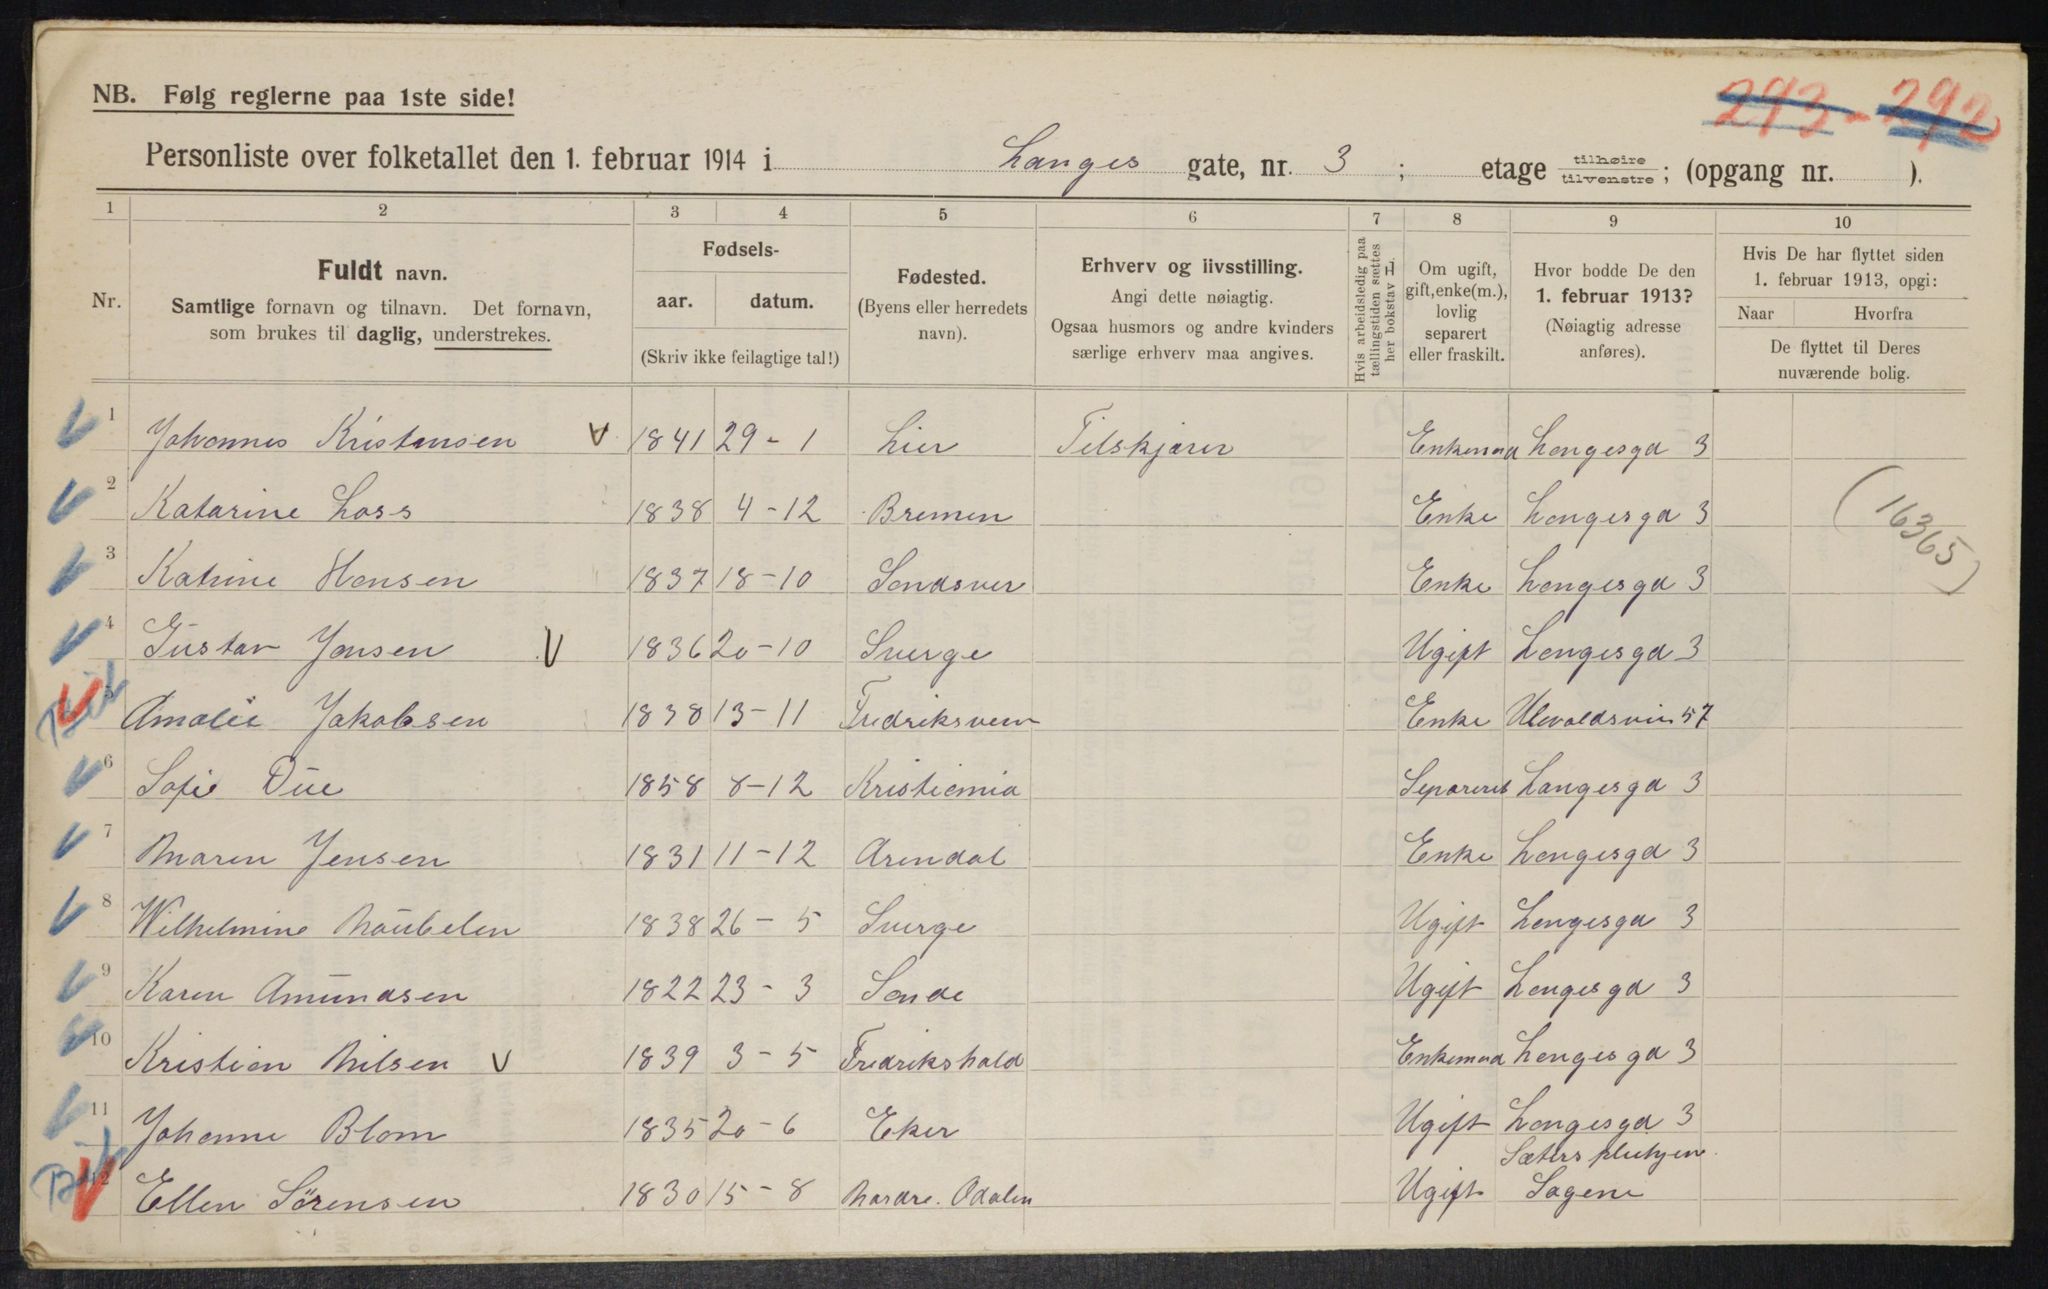 NB. Følg reglerne paa 1ste side!
293 - 292
Personliste over folketallet den 1. februar 1914 i Langes gate, nr. 3 ; etage tilhøire tilvenstre ; (opgang nr. ).
1 2 3 4 5 6 7 8 9 10
Nr.
Fuldt navn.
Samtlige fornavn og tilnavn. Det fornavn,
som brukes til daglig, understrekes.
Fødsels-
aar. datum.
(Skriv ikke feilagtige tal!)
Fødested.
(Byens eller herredets
navn).
Erhverv og livsstilling.
Angi dette nøiagtig.
Ogsaa husmors og andre kvinders
særlige erhverv maa angives.
Hvis arbeidsledig paa
tællingstiden sættes
her bokstav L.
Om ugift,
gift, enke(m.),
lovlig
separert
eller fraskilt.
Hvor bodde De den
1. februar 1913?
(Nøiagtig adresse
anføres).
Hvis De har flyttet siden
1. februar 1913, opgi:
Naar Hvorfra
De flyttet til Deres
nuværende bolig.
1 Johannes Kristensen V 1841 29-1 Lier Enkemand Langesgd 3
2 Katarine Loss 1838 4-12 Bremen Enke Langesgd 3
(16365)
3 Katrine Hansen 1837 18-10 Sandsver Enke Langesgd 3
4 Gustav Jensen V 1836 20-10 Sverge Ugift Langesgd 3
5 Amalie Jakobsen 1838 13-11 Fredriksvern Enke Ulevoldsvein 57
6 Sofie Due 1858 8-12 Kristiania Separeret Langesgd 3
7 Maren Jensen 1831 11-12 Arendal Enke Langesgd 3
8 Wilhelmine 1838 26-5 Sverge Ugift Langesgd 3
9 Karen Amundsen 1822 23-3 Sande Ugift Langesgd 3
10 Kristian Nilsen V 1839 3-5 Fredrikshald Enkemand Langesgd 3
11 Johanne Blom 1835 20-6 Eker Ugift Langesgd 3
12 Ellen Sörensen 1830 15-8 Nordre. Odalen Ugift Sagene